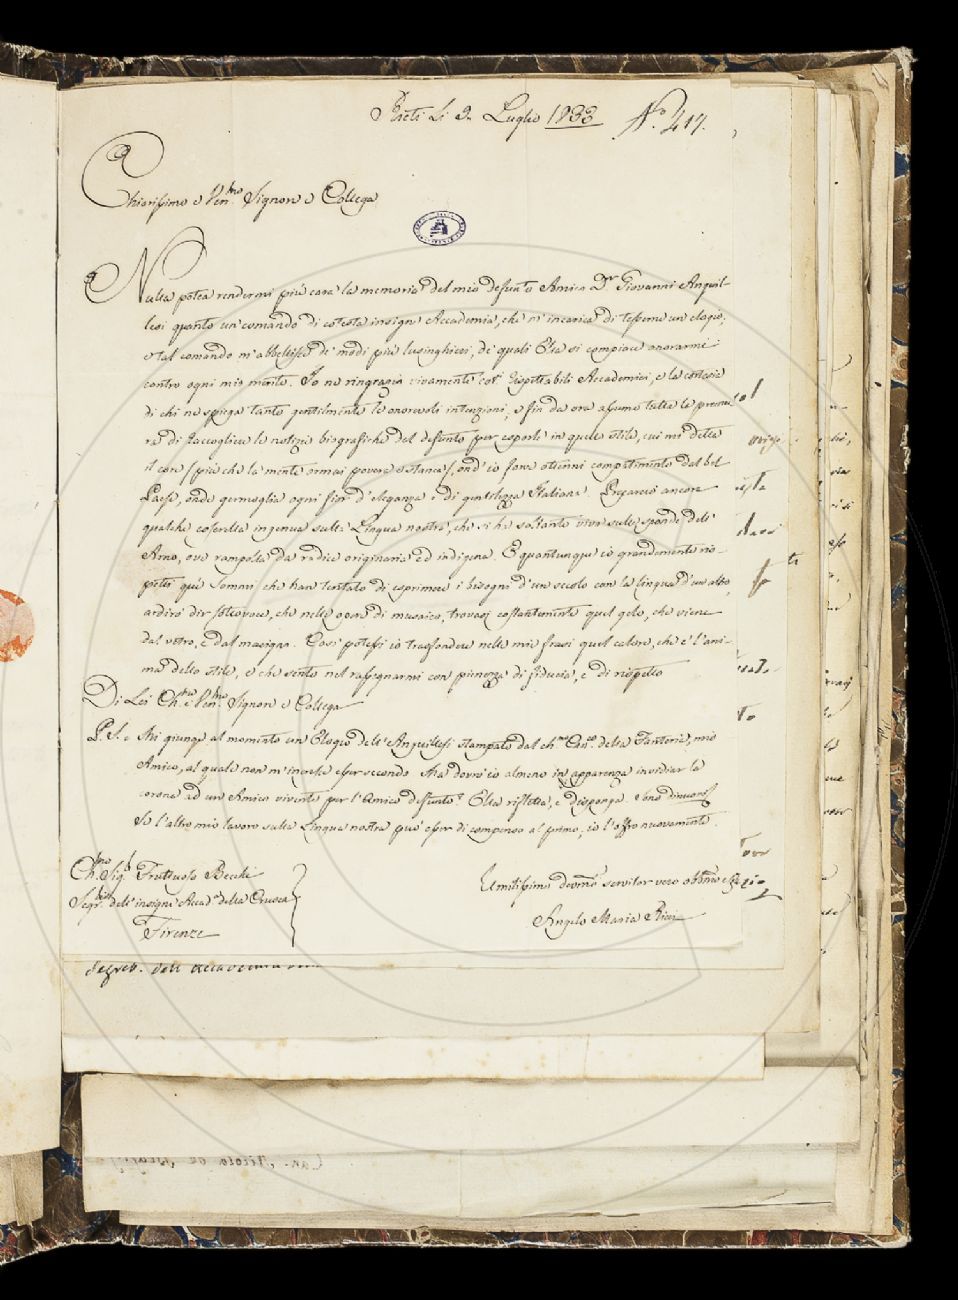 Rieti li 2. Luglio 1833 N.° 417.
Chiarissimo e Ven.mo Signore e Collega
Nulla potea rendermi più cara la memoria del mio defunto Amico D.r Giovanni Anguil-
lesi quanto un comando di cotesta insigne Accademia, che m'incarica di tesserne un elogio;
e tal comando m'abbellisce de' modi più lusinghieri, de' quali Ella si compiace onorarmi
contro ogni mio merito. Io ne ringrazio vivamente cot.i rispettabili Accademici, e la cortesia
di chi ne spiega tanto gentilmente le onorevoli intenzioni, e fin da ora assumo tutta la premu-
ra di raccogliere le notizie biografiche del defunto per esporle in quello stile, cui mi detta
il core (più che la mente ormai povera e stanca), ond' io forse ottenni compatimento dal bel
Paese, onde germoglia ogni fior d'eleganza e di gentilezza Italiana. Preparerò ancora
qualche coserella ingenua sulla Lingua nostra, che si ha soltanto viva sulle sponde dell'
Arno, ove rampolla da radice originaria ed indigena. E quantunque io grandemente ris-
petti que' Sommi che han tentato di esprimere i bisogni d'un secolo con la lingua d'un altro,
ardirò dir sottovoce, che nelle opere di musaico, trovasi costantemente quel gelo, che viene
dal vetro, e dal macigno. Così potessi io trasfondere nelle mie frasi quel calore, che è l'ani-
ma dello stile, e che sento nel rassegnarmi con pienezza di fiducia, e di rispetto
Di Lei Ch.mo e Ven.mo Signore e Collega
P. S. Mi giunge al momento un Elogio dell'Anguillesi stampato dal ch.mo Can.co della Fanteria, mio
Amico, al quale non m'incresce esser secondo Ma dovrò io almeno in apparenza invidiar la
corona ad un Amico vivente per l'Amico defunto? Ella rifletta, e disponga. Sono di nuovo
Se l'altro mio lavoro sulla Lingua nostra può esser di compenso al primo, io l'offro nuovamente.
Ch.mo Sig.r Fruttuoso Becchi
Segr. dell'insigne Accad.a della Crusca
Firenze
Umilissimo devmo servitor vero obbmo
Angelo Maria Ricci
segret. dell' Accademia